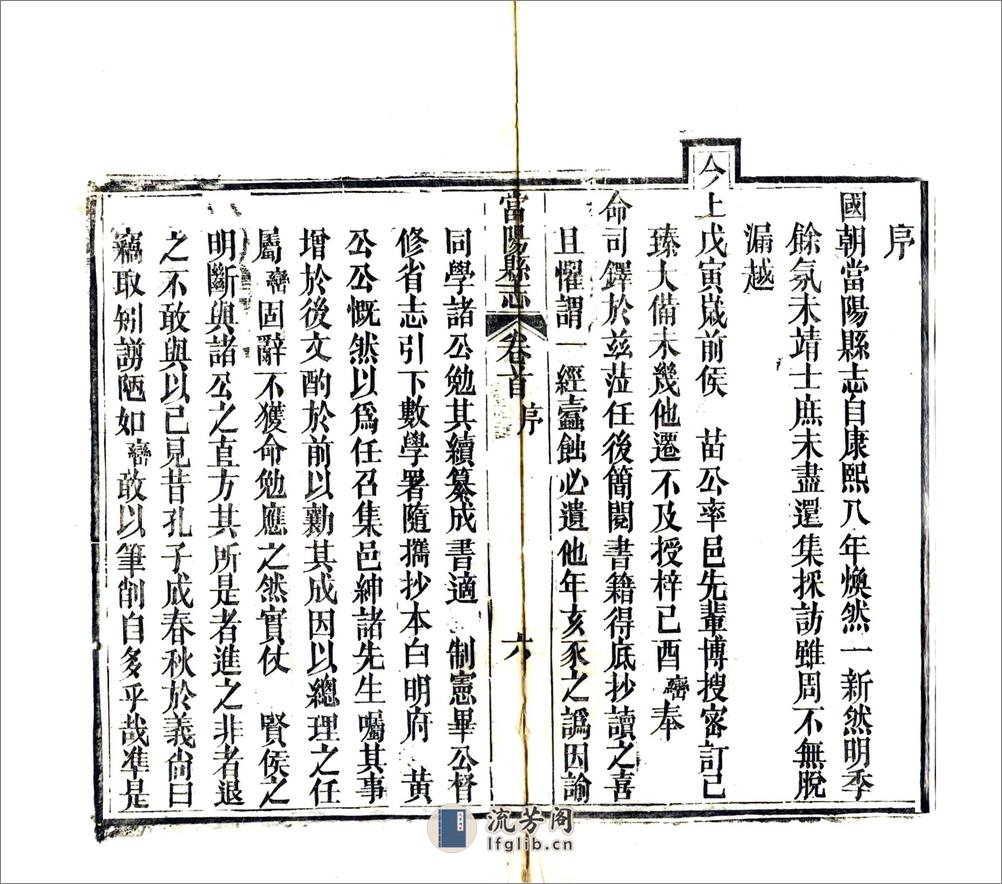 序
國朝當陽縣志自康熙八年煥然一新然明季
餘氛未靖士庶未盡還集採訪雖周不無脫
漏越
今上戊寅歲前侯 苗公率邑先輩博搜密訂已
臻大備未幾他遷不及授梓己酉巒奉
命司鐸於兹蒞任後簡閱書籍得底抄讀之喜
且懼謂一經蠹蝕必遺他年亥豕之譌因諭
當陽縣志 卷首 序 六
同學諸公勉其續纂成書適 制憲畢公督
修省志引下數學署隨攜抄本白明府 黄
公公慨然以爲任召集邑紳諸先生囑其事
增於後文酌於前以勷其成因以總理之任
屬巒固辭不獲命勉應之然實仗 賢侯之
明斷與諸公之直方其所是者進之非者退
之不敢與以已見昔孔子成春秋於義尙曰
竊取矧謭陋如巒敢以筆削自多乎哉準是
流芳阁
lfglib.cn